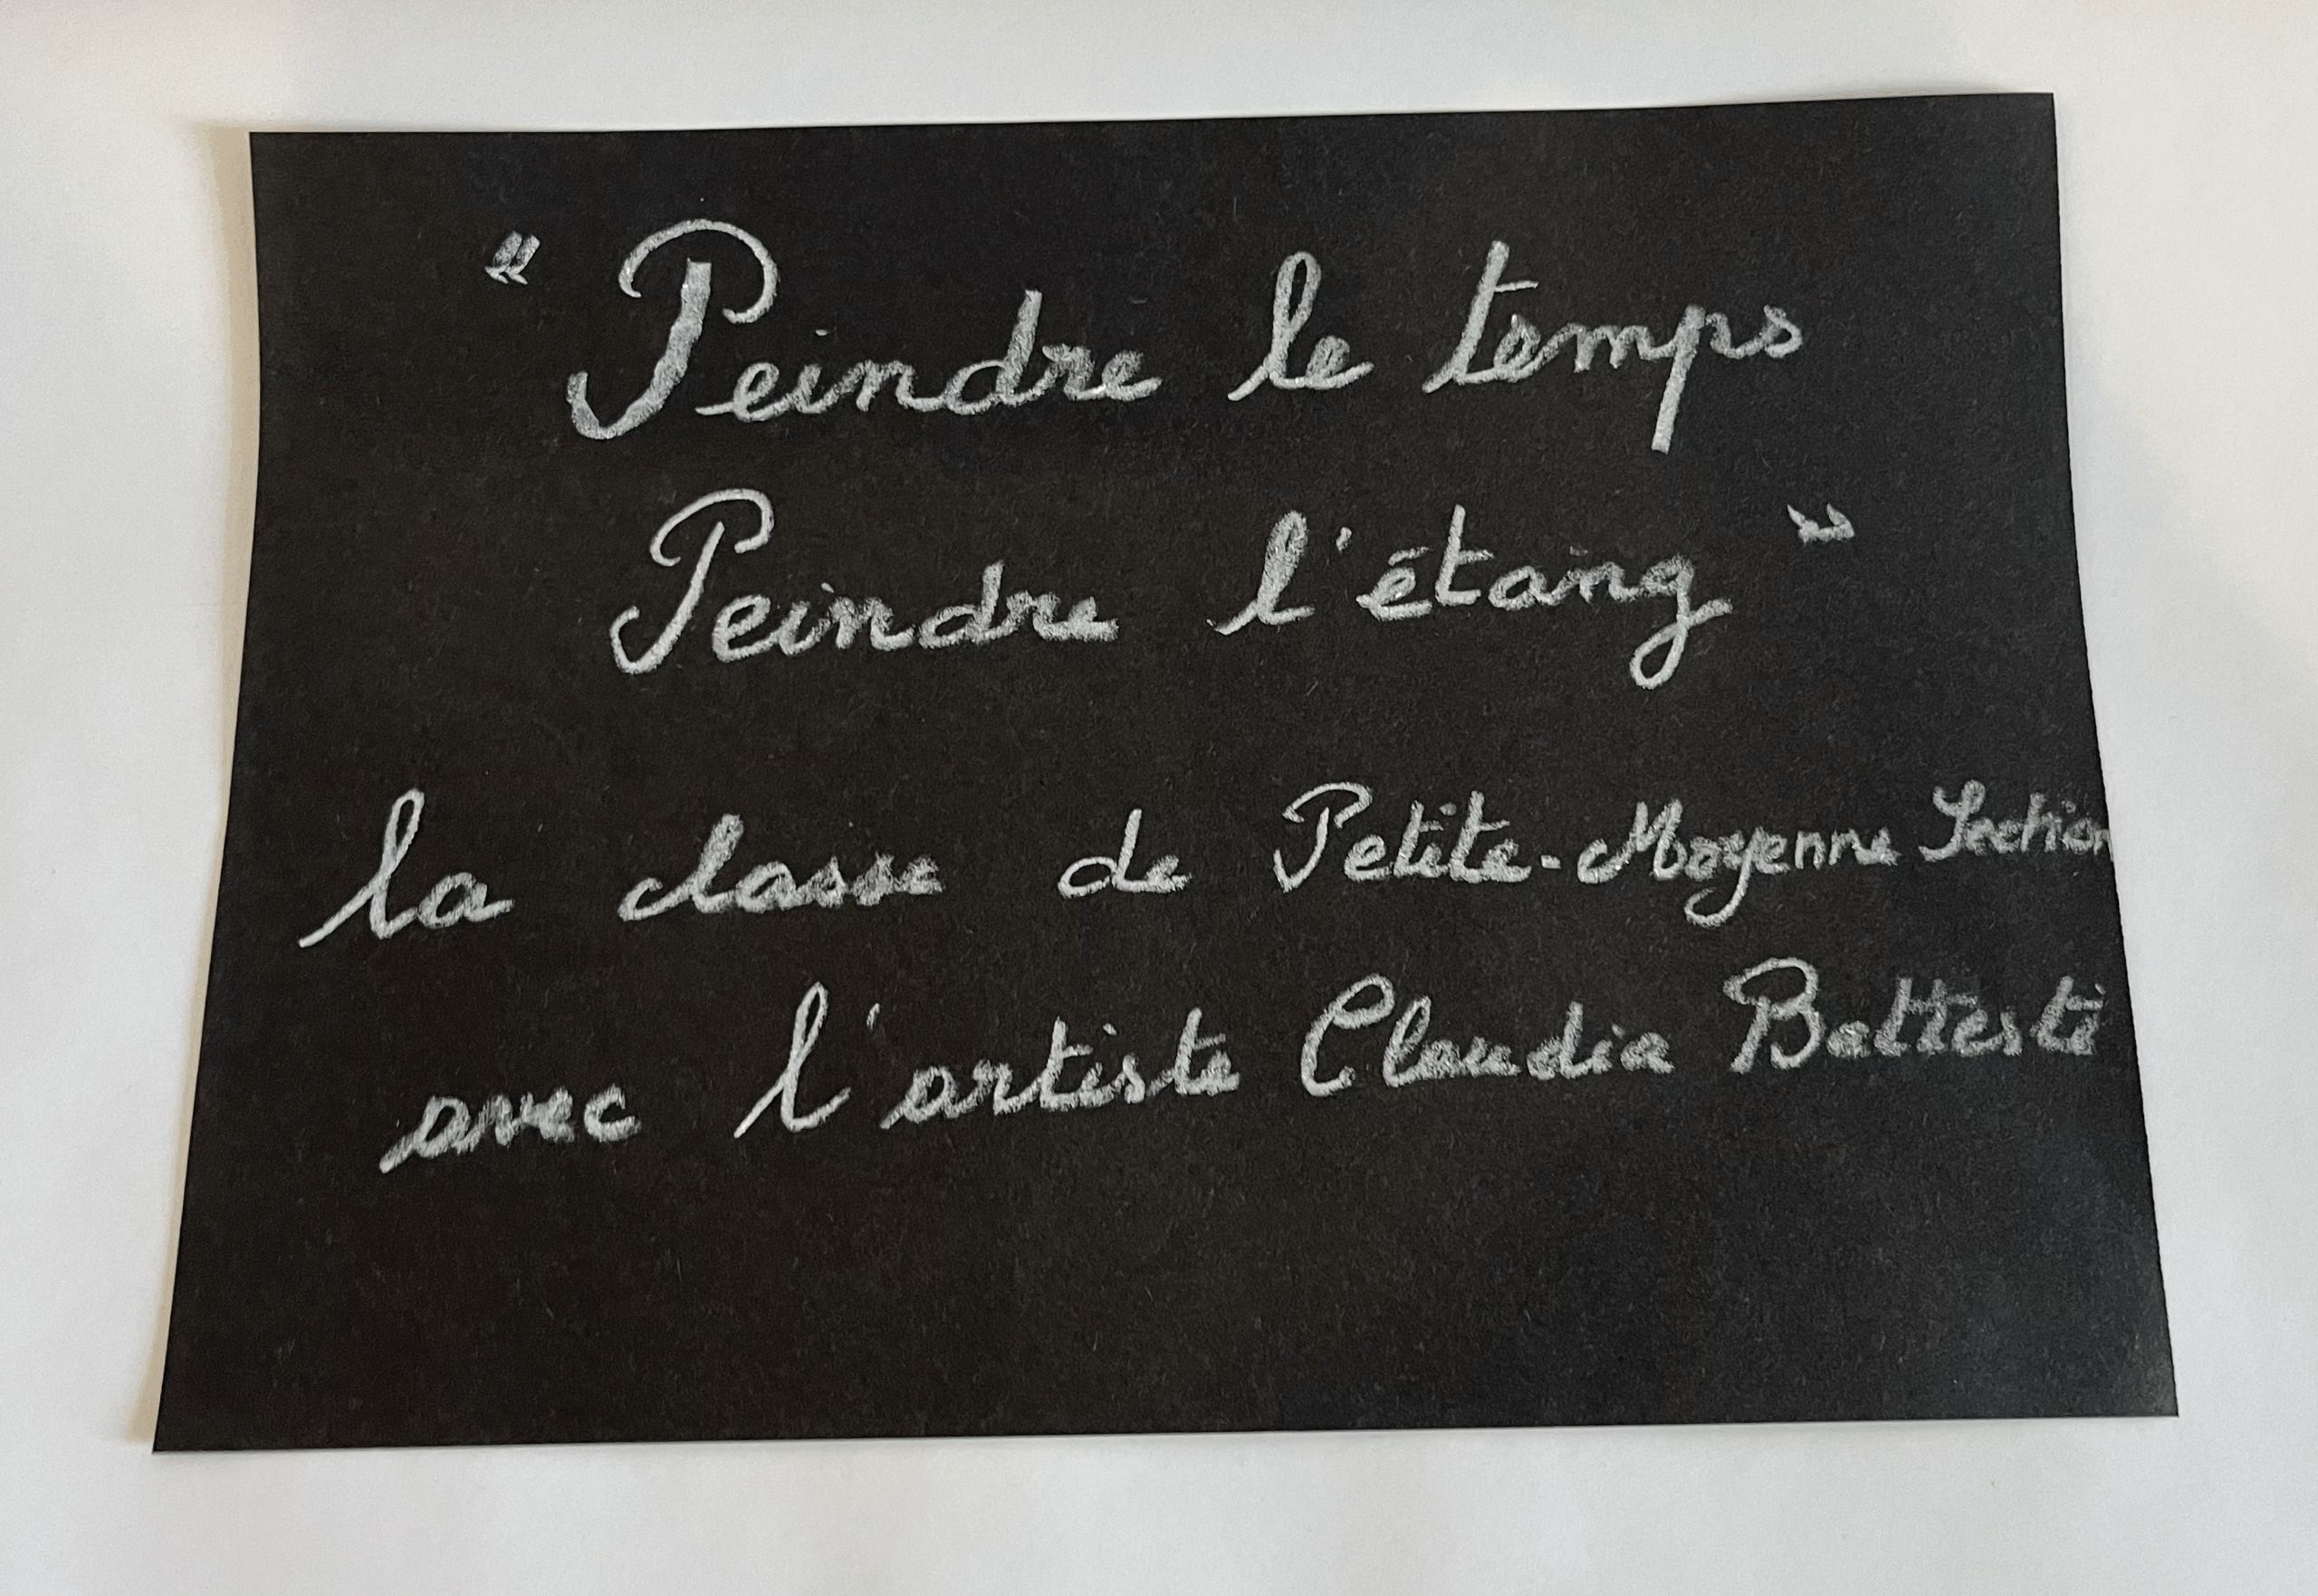 "Peindre le temps
Peindre l'étang"
la classe de Petite-Moyenne Section
avec l'artiste Claudia Battesti